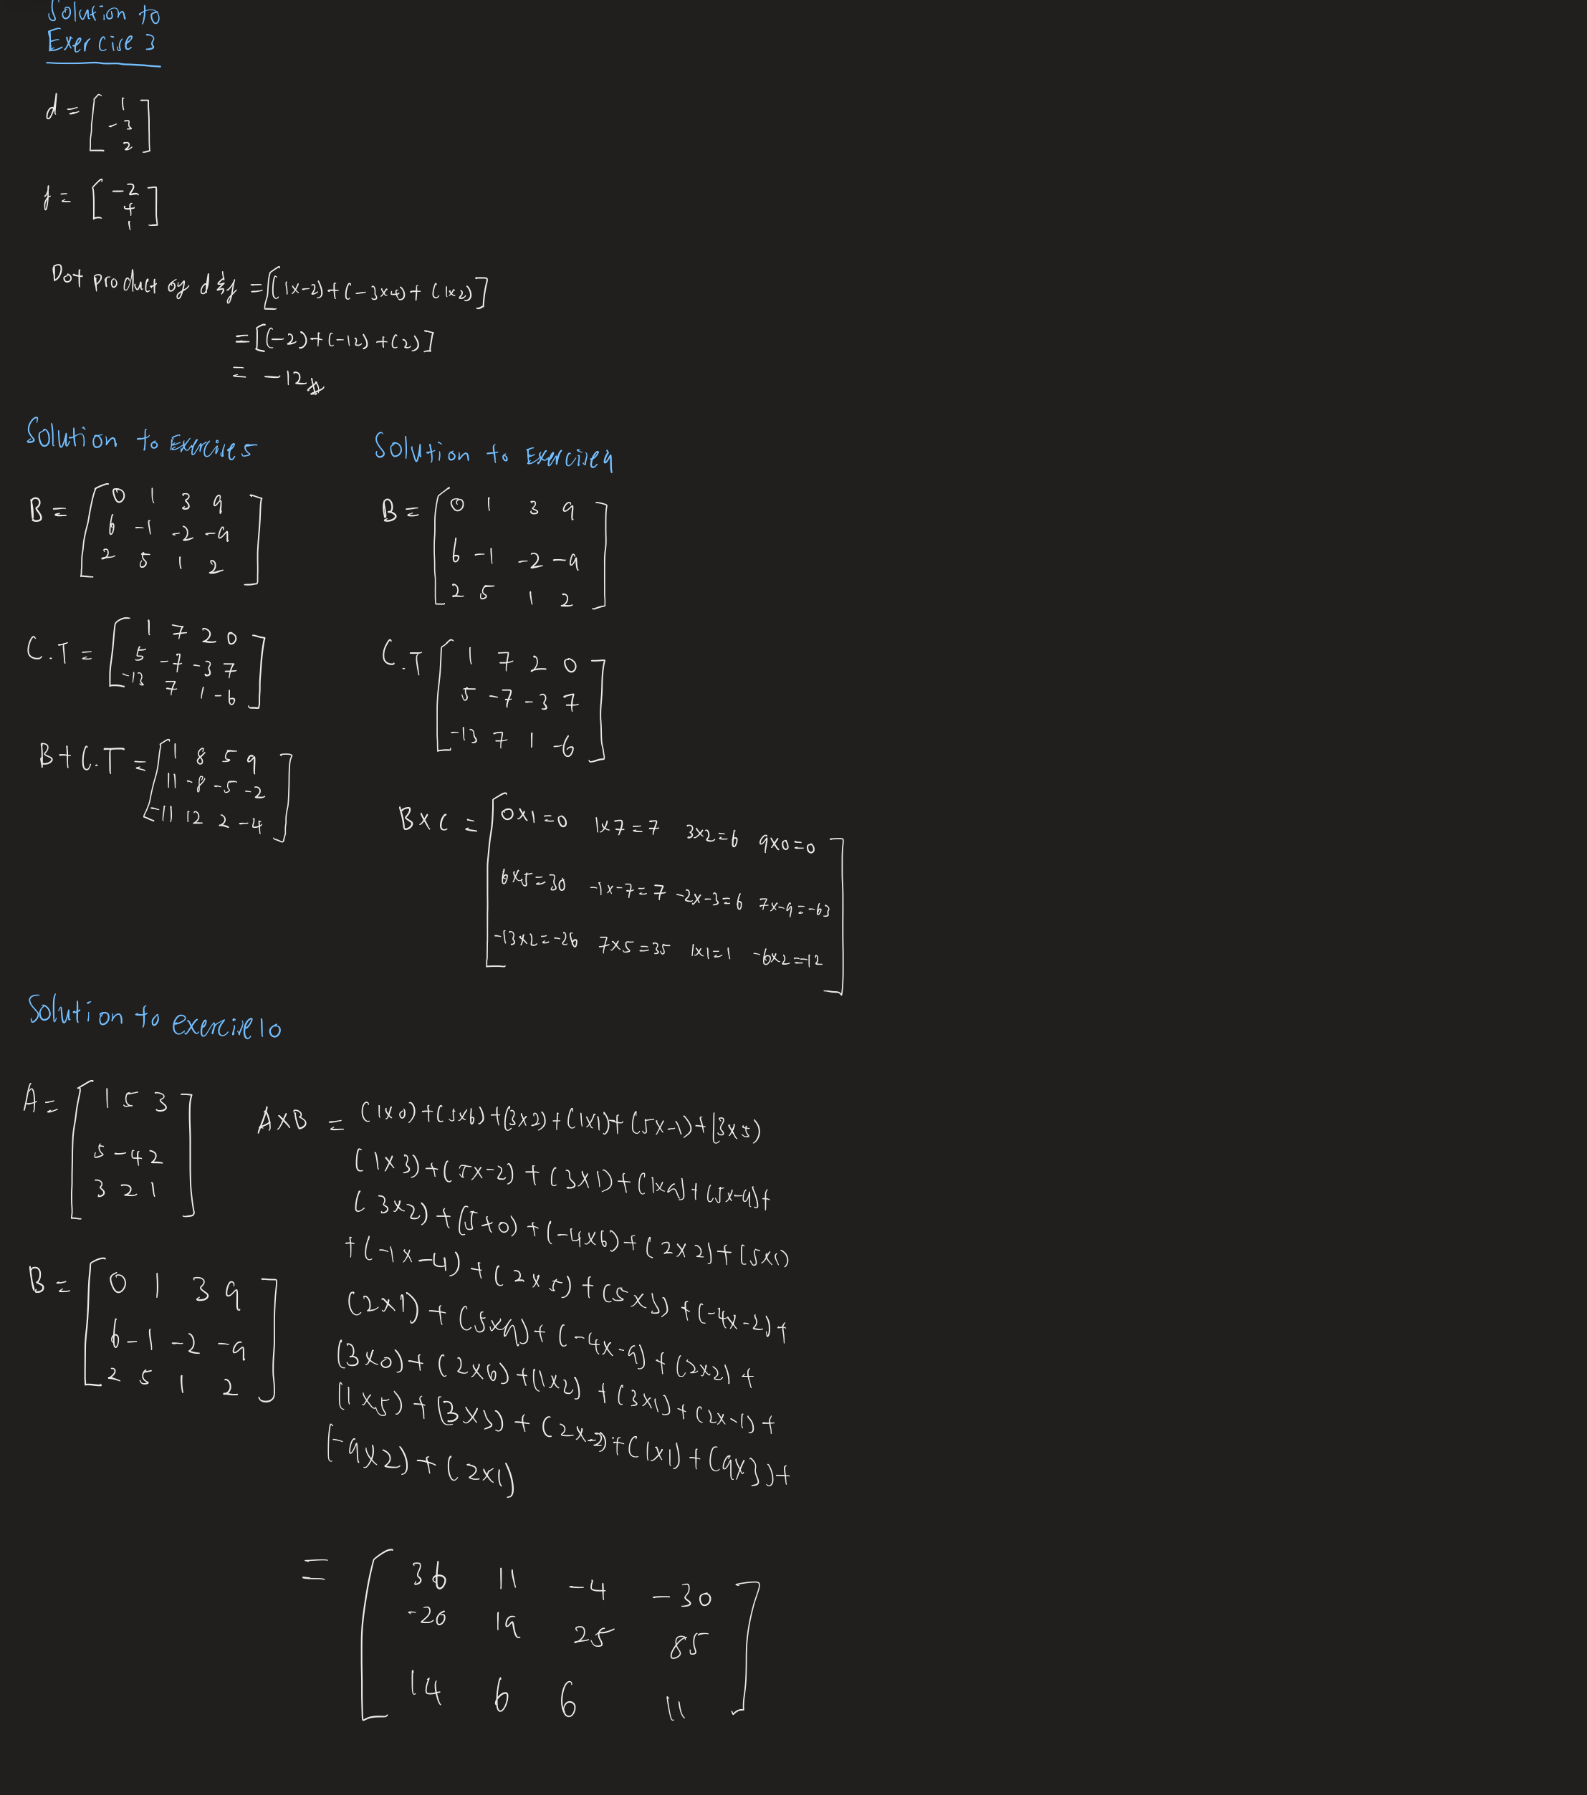 Solution to
Exercise 3
d = [ 1
-3
2 ]
f = [ -2
4
1 ]
Dot product of d & f = [(1x-2)+(-3x4)+(1x2)]
= [(-2)+(-12)+(2)]
= -12
Solution to Exercise 5
B = [ 0 1 3 9
6 -1 -2 -9
2 5 1 2 ]
C.T = [ 1 7 2 0
5 -7 -3 7
-13 7 1 -6 ]
B+C.T = [ 1 8 5 9
11 -8 -5 -2
-11 12 2 -4 ]
Solution to Exercise 9
B = [ 0 1 3 9
6 -1 -2 -9
2 5 1 2 ]
C.T [ 1 7 2 0
5 -7 -3 7
-13 7 1 -6 ]
BxC = [ 0x1=0 1x7=7 3x2=6 9x0=0
6x5=30 -1x-7=7 -2x-3=6 7x-9=-63
-13x2=-26 7x5=35 1x1=1 -6x2=-12 ]
Solution to exercise 10
A = [ 1 5 3
5 -4 2
3 2 1 ]
B = [ 0 1 3 9
6 -1 -2 -9
2 5 1 2 ]
AxB = (1x0)+(5x6)+(3x2)+(1x1)+(5x-1)+(3x5)
(1x3)+(5x-2)+(3x1)+(1x9)+(5x-9)+
(3x2)+(5+0)+(-4x6)+(2x2)+(5x1)
+(-1x-4)+(2x5)+(5x3)+(-4x-2)+
(2x1)+(5x9)+(-4x-9)+(2x2)+
(3x0)+(2x6)+(1x2)+(3x1)+(2x-1)+
(1x5)+(3x3)+(2x-2)+(1x1)+(9x3)+
(-9x2)+(2x1)
= [ 36 11 -4 -30
-20 19 25 85
14 6 6 11 ]